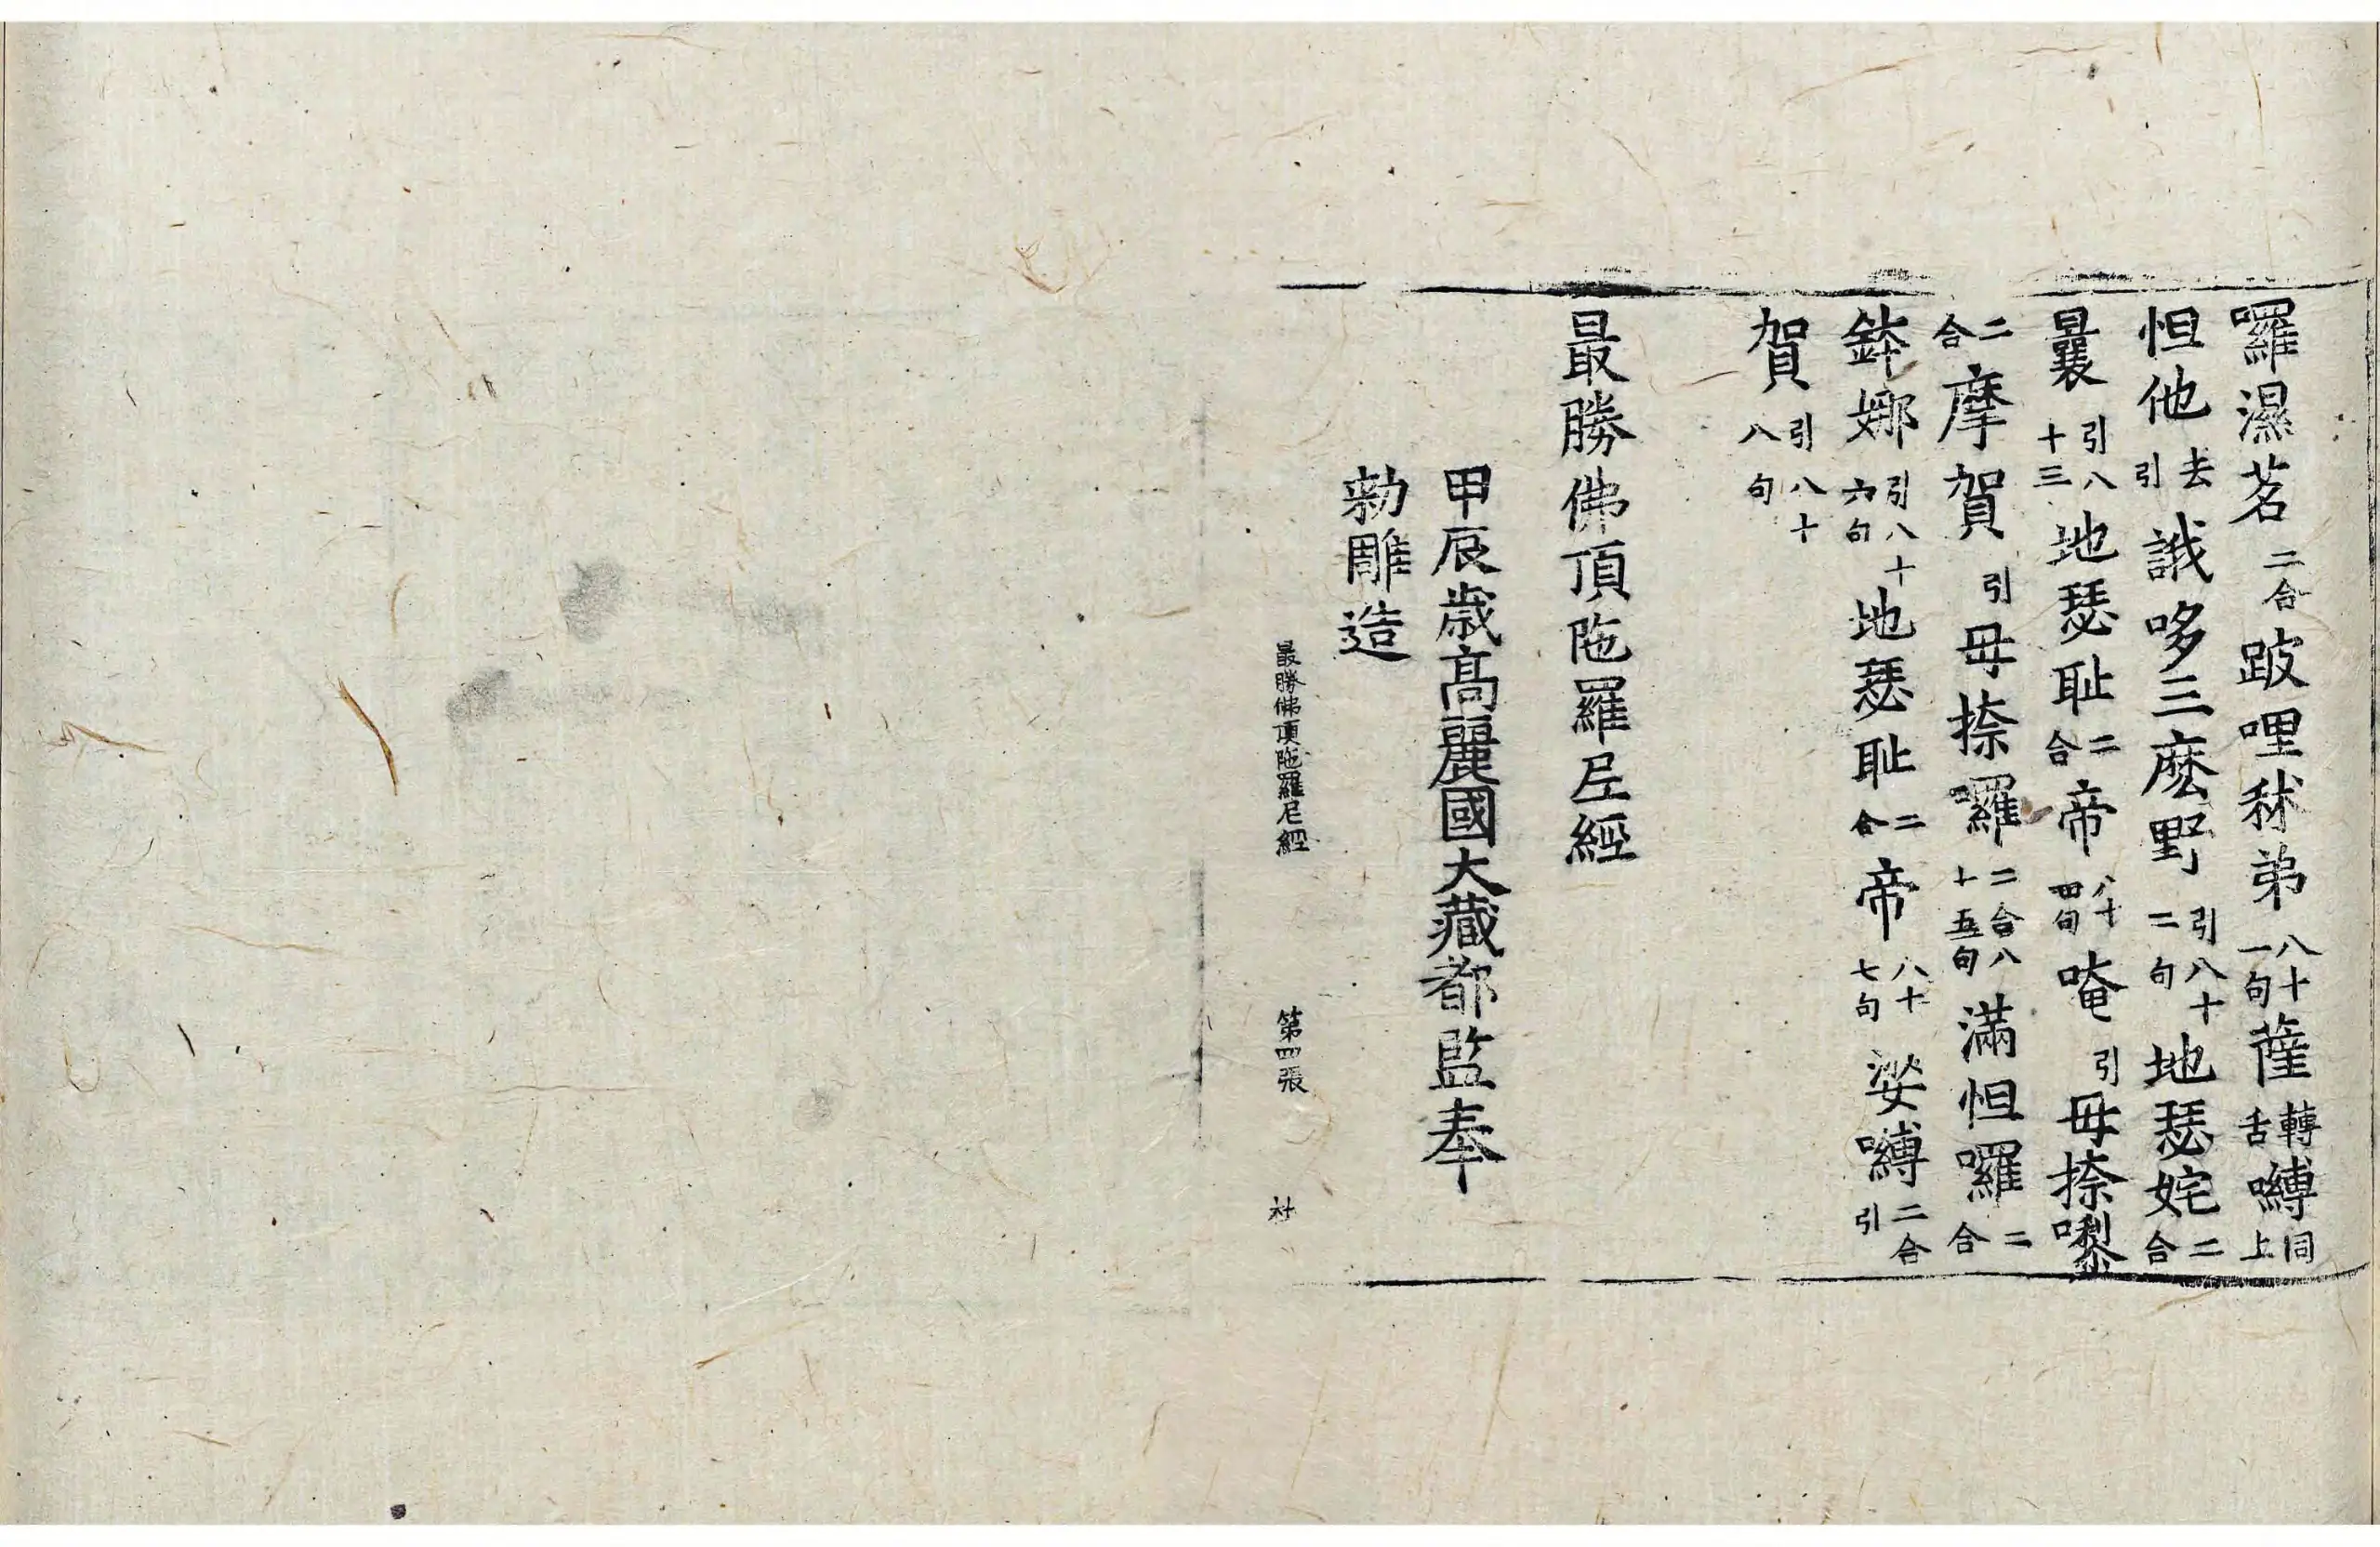 囉濕茗二合跛哩秫弟八十一句薩轉舌嚩同上
怛他去引誐哆三麽野引八十二句地瑟姹二合
曩引八十三地瑟恥二合帝八十四句唵引毋捺㘑
二合摩賀引毋捺囉二合八十五句滿怛囉二合
鉢娜引八十六句地瑟恥二合帝八十七句娑嚩二合引
賀引八十八句
最勝佛頂陁羅尼經
甲辰歲高麗國大藏都監奉
勑雕造
最勝佛頂陁羅尼經 第四張